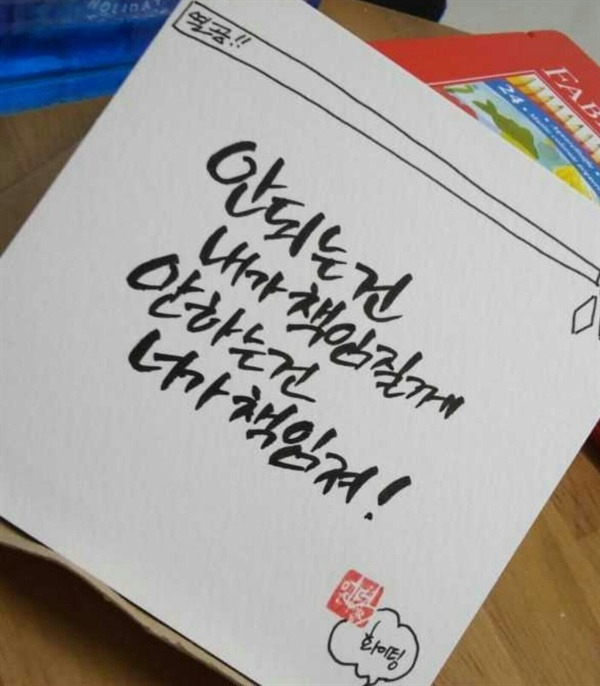 HOLIDAY
열공!!
FABE
24
안되는건
내가 책임질게
안하는건
너가 책임져!